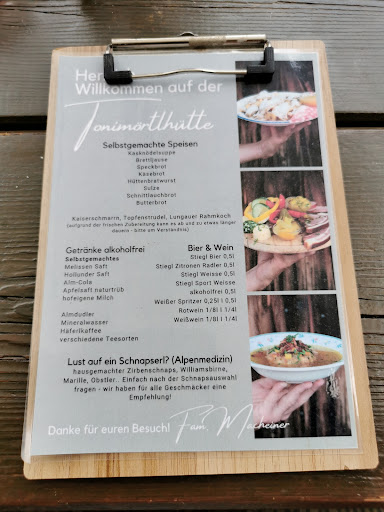 Willkommen auf der
Tonimörtlhütte
Selbstgemachte Speisen
Kasknödelsuppe
Brettljause
Speckbrot
Käsebrot
Hüttenbratwurst
Sulze
Schnittlauchbrot
Butterbrot
Kaiserschmarrn, Topfenstrudel, Lungauer Rahmkoch
(aufgrund der frischen Zubereitung kann es ab und zu etwas länger
dauern - bitte um Verständnis)
Getränke alkoholfrei
Selbstgemachtes
Melissen Saft
Hollunder Saft
Alm-Cola
Apfelsaft naturtrüb
hofeigene Milch
Almdudler
Mineralwasser
Häferlkaffee
verschiedene Teesorten
Bier & Wein
Stiegl Bier 0,5l
Stiegl Zitronen Radler 0,5l
Stiegl Weisse 0,5l
Stiegl Sport Weisse
alkoholfrei 0,5l
Weißer Spritzer 0,25l | 0,5l
Rotwein 1/8l | 1/4l
Weißwein 1/8l | 1/4l
Lust auf ein Schnapserl? (Alpenmedizin)
hausgemachter Zirbenschnaps, Williamsbirne,
Marille, Obstler. Einfach nach der Schnapsauswahl
fragen - wir haben für alle Geschmäcker eine
Empfehlung!
Danke für euren Besuch! Fam. Macheiner